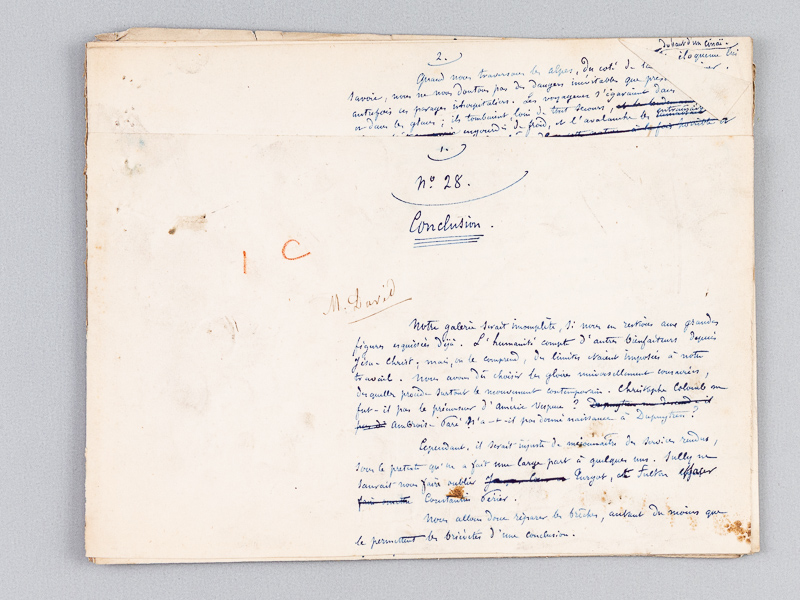 2.
du haut d'un
éloquemm
Quand nous traversons les alpes, du coté de la
savoie, nous ne nous doutons pas des dangers inévitables que
autrefois ces parages inhospitaliers. Les voyageurs s'égaraient dans
or dans les glaces; ils tombaient loin de tout secours,
engourdis de froid, et l'avalanche les
1.
N° 28.
Conclusion.
1 C
M. David
Notre galerie serait incomplète, si nous en restions aux grandes
figures esquissées déjà. L'humanité compte d'autres bienfaiteurs depuis
Jésus-Christ; mais, on le comprend, des limites étaient imposées à notre
travail. Nous avons dû choisir les gloires universellement consacrées,
desquelles procède surtout le mouvement contemporain. Christophe Colomb ne
fut-il pas le précurseur d'Améric Vespuce?
Ambroise Paré n'a-t-il pas donné naissance à Dupuytren?
Cependant, il serait injuste de méconnaître des services rendus,
sous le prétexte qu'on a fait une large part à quelques uns. Sully ne
saurait nous faire oublier Turgot, et Fulton effacer
Constantin Périer.
Nous allons donc réparer les brèches, autant du moins que
le permettent les brièvetés d'une conclusion.